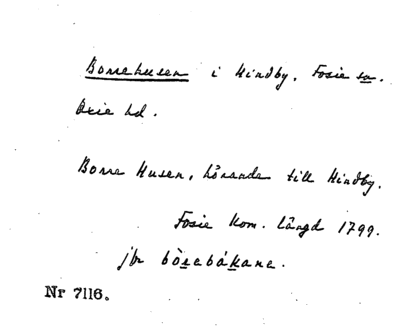 Borrehusen i Hindby, Fosie sn.
Oxie hd.
Borre Husen, hörande till Hindby.
Fosie Kom. längd 1799.
jfr bòrebákane.
Nr 7116.